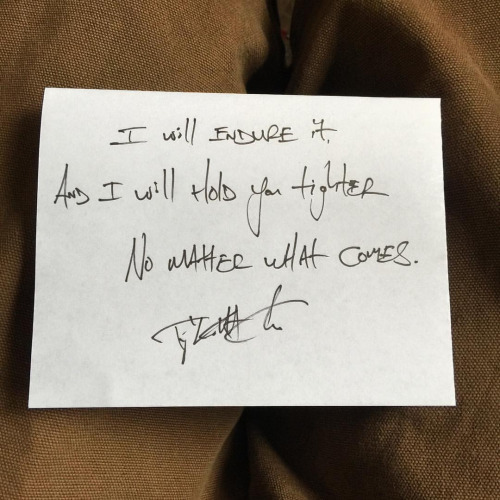 I will ENDURE it.
AND I will Hold you tighter
No MATTER WHAT COMES.